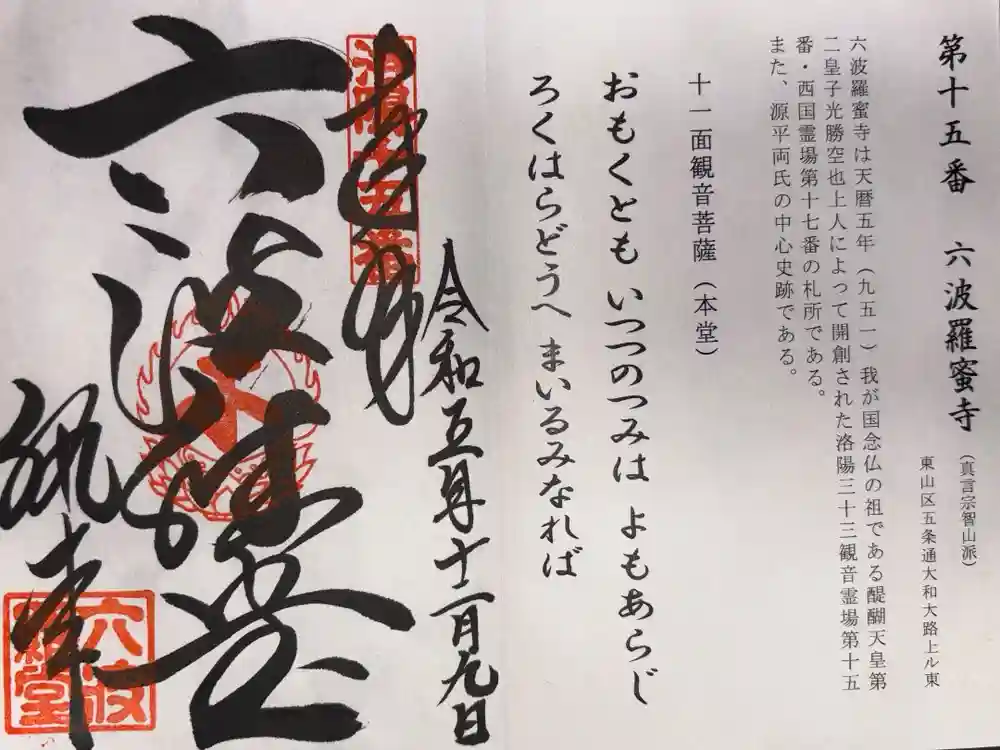 第十五番　六波羅蜜寺
（真言宗智山派）
東山区五条通大和大路上ル東
六波羅蜜寺は天暦五年（九五一）我が国念仏の祖である醍醐天皇第
二皇子光勝空也上人によって開創された洛陽三十三観音霊場第十五
番・西国霊場第十七番の札所である。
また、源平両氏の中心史跡である。
十一面観音菩薩（本堂）
おもくとも いつつのつみは よもあらじ
ろくはらどうへ まいるみなれば
令和五年十一月九日
奉拝
洛陽十五番
六波羅堂